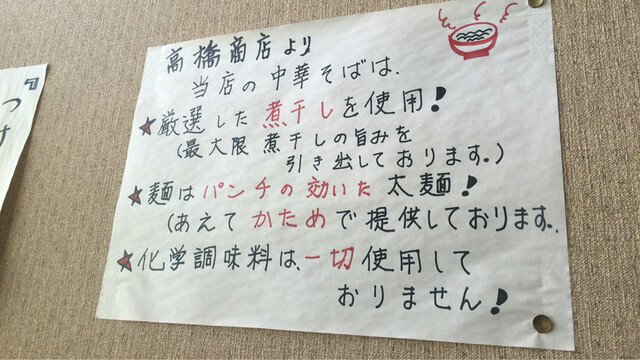 高橋商店より
当店の中華そばは、
★厳選した煮干しを使用!
(最大限煮干しの旨みを
引き出しております。)
★麺はパンチの効いた太麺!
(あえてかためで提供しております。
★化学調味料は、一切使用して
おりません!
『つけ